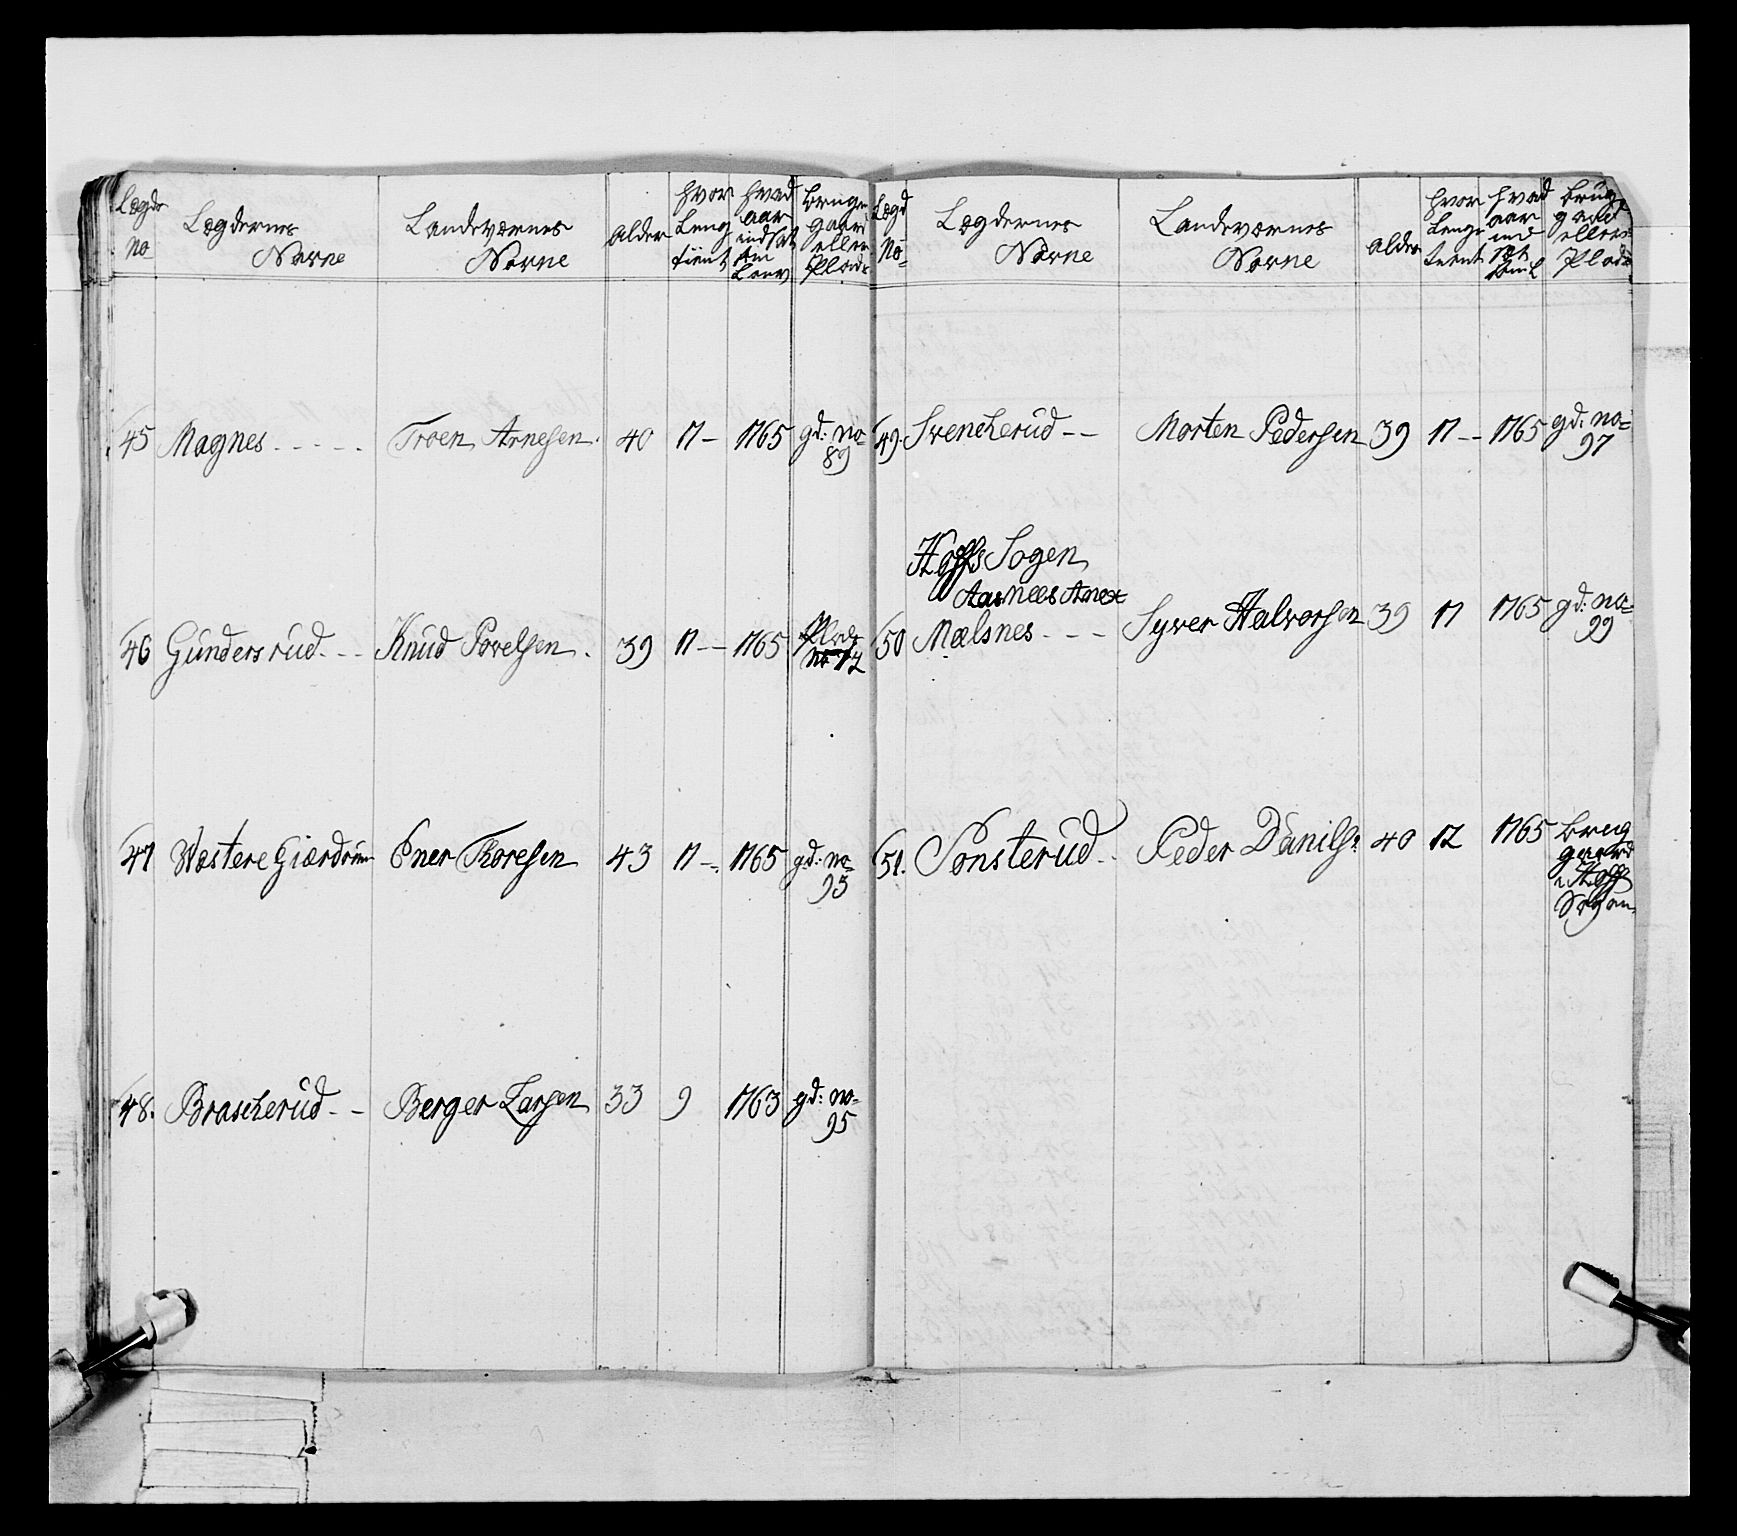 Lægds No
Lægdernes Navne
Landeværnes Navne
alder
hvor Leng tient
hvad aar indsat
bruger gaard eller Plads
45 Magnes - - - - Troen Arnesen. 40 17 - 1765 gd: no= 89
46 Gundersrud. - - Knud Povelsen. 39 17 - - 1765 Plads no 72
47 Wæstere Giærdrum Ener Thoresen 43 17 -. 1765 gd: no= 95
48. Brascherud - - Berger Larsen 33 9 1763 gd: no= 95
Lægd No=
Lægdernes Navne
Landeværnes Navne
alder
hvor Lenge tient
hvad aar ind sat
brug gaard eller Plads
49. Svencherud - - Morten Pedersen 39 17 - - 1765 gd: no= 97
Hoffs Sogen
Aasnees Anex
50 Mælsnes - - - Syver Halvorsen 39 17 1765 gd: no= 99
51. Sønsterud - - Peder Danils: 40 12 1765 brug gaard i Hoff Sogen